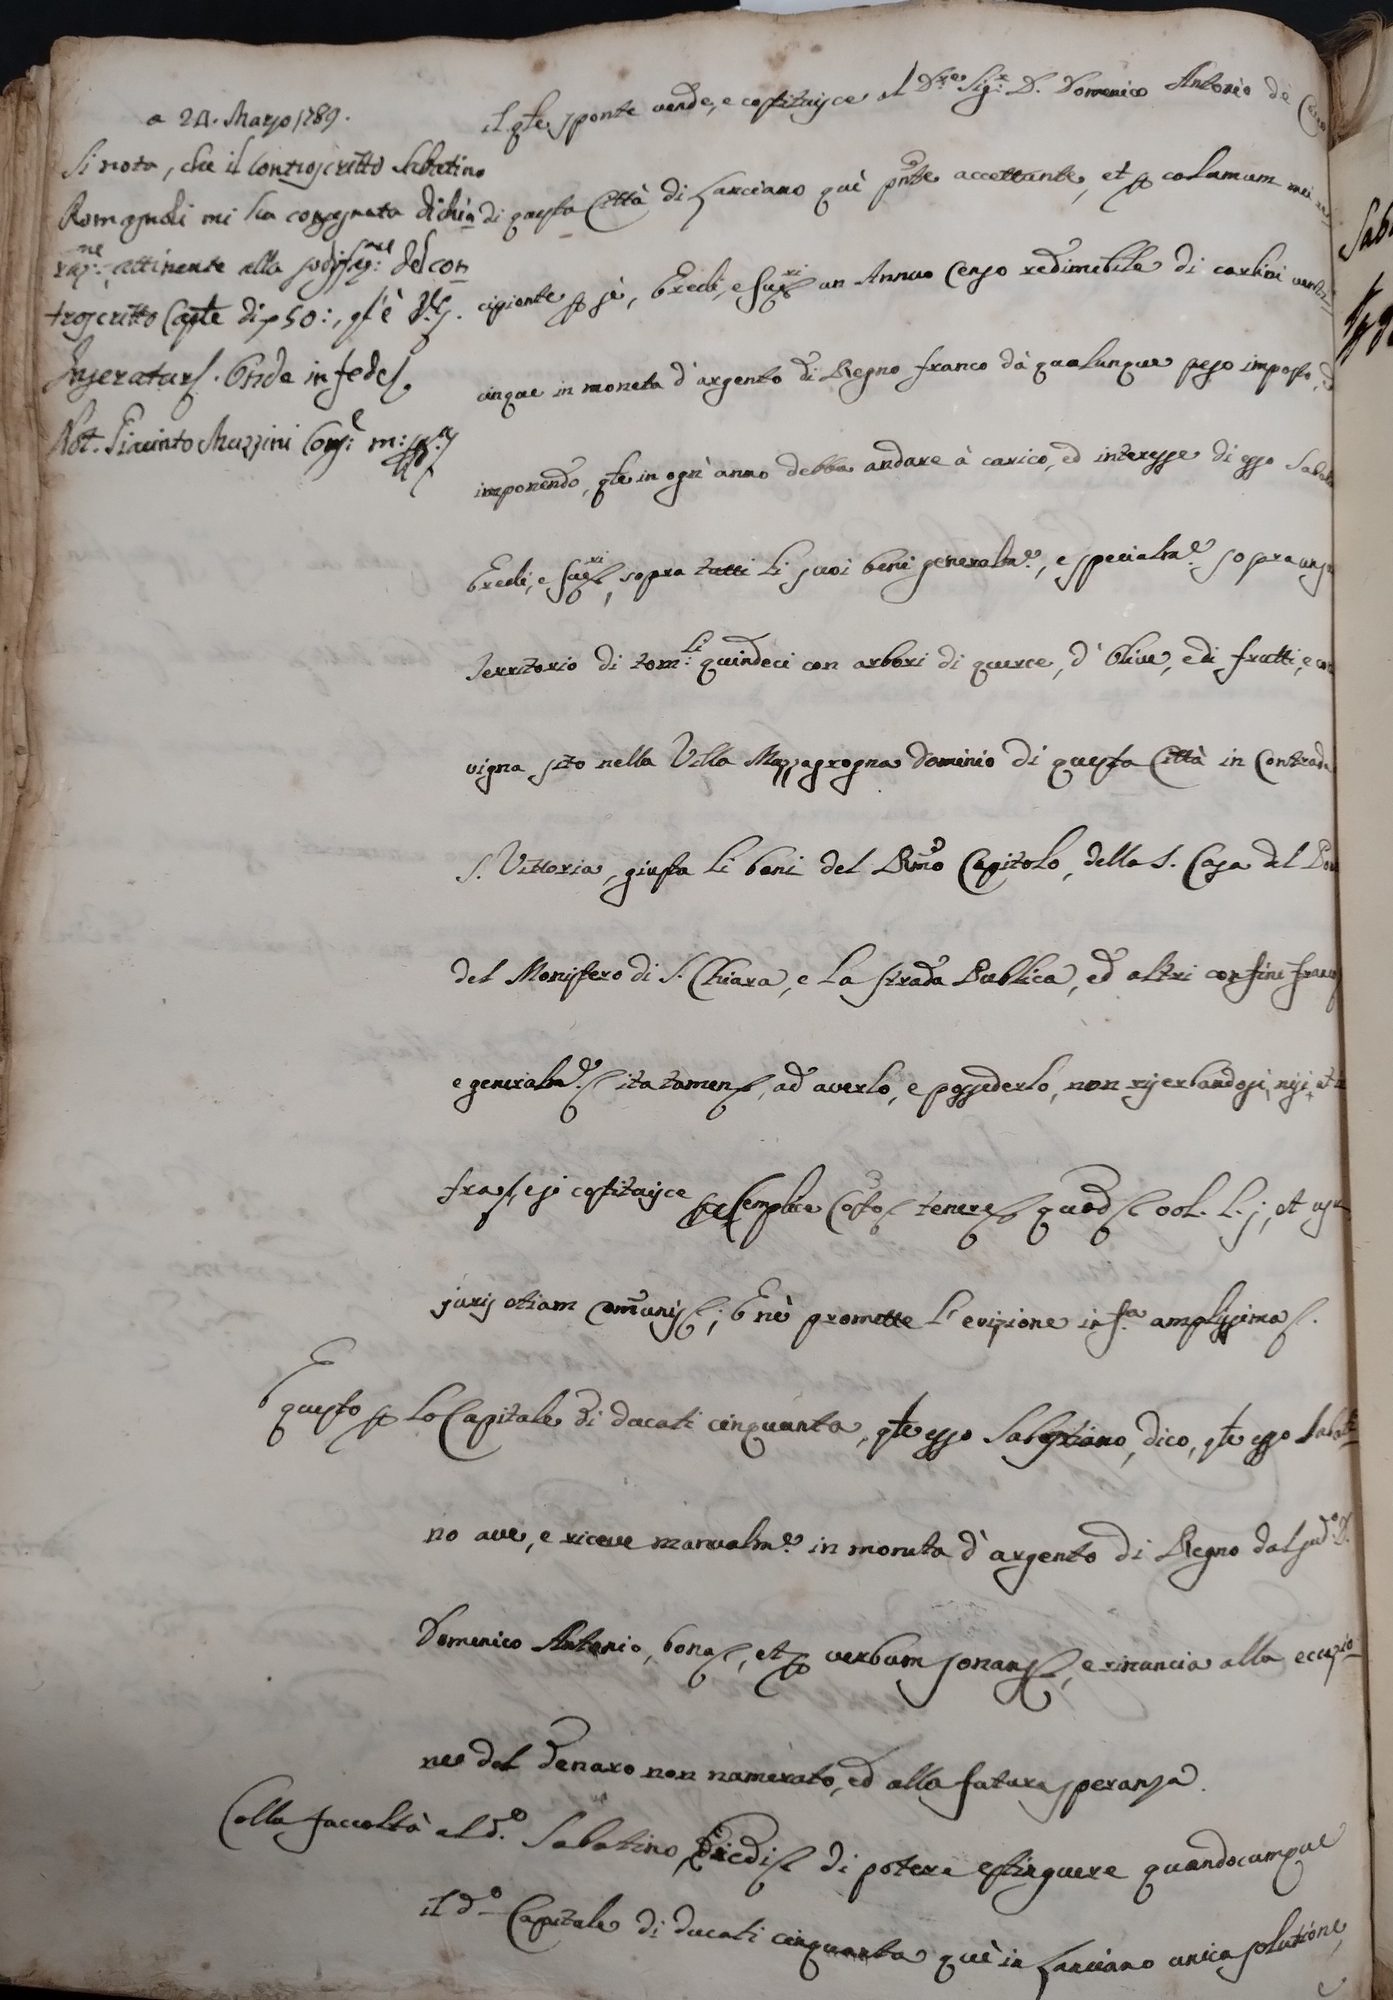 a 24. Marzo 1789.
Si nota, che il controscritto Sabatino
Romagnoli mi ha consegnata dichia
raz:ne attinente alla sodisfaz:ne del con
troscritto Cap.le di D 50:,
Inseratur. Onde in fede
Not. Giacinto Muzzini Cons:e m: pp.a
il q.le sponte vende, e costituisce al D.re Sig.r D. Domenico Antonio de
di questa Città di Lanciano quì p̄nte accettante, et p calamum mei
cipiente p sè, Eredi, e Succ.ri un Annuo Censo redimibile di carlini venti
cinque in moneta d'argento di Regno franco da qualunque peso imposto,
imponendo, q.le in ogn'anno debba andare à carico, ed interesse di esso
Eredi, e Succ.ri, sopra tutti li suoi beni generalm.e, e specialm.e sopra
Territorio di tom:li quindeci con arbori di querce, d'olive, e di frutti, e
vigna sito nella Villa Mozzagrogna dominio di questa Città in Contrada
S. Vittoria, giusta li beni del R̄mo Capitolo, della S. Casa del
del Monistero di S. Chiara, e la strada Publica, ed altri confini
e generalm.e ita tamen, ad averlo, e possederlo, non riserbandosi, nisi
e si costituisce Semplice tenere quod
juris etiam com̄unis; E nè promette l'evizione in f.a amplissima.
E questo p lo Capitale di ducati cinquanta, q.le esso Sabatiano, dico, q.le esso Sabati
no ave, e riceve manualm.e in moneta d'argento di Regno dal sud.o D.
Domenico Antonio, bona, et p verbum sonans, e rinuncia alla eccezio
ne del denaro non numerato, ed alla futura speranza.
Colla faccoltà al d.o Sabatino, Eredi di potere estinguere quandocumque
il d.o Capitale di ducati cinquanta quì in Lanciano unica solutione,